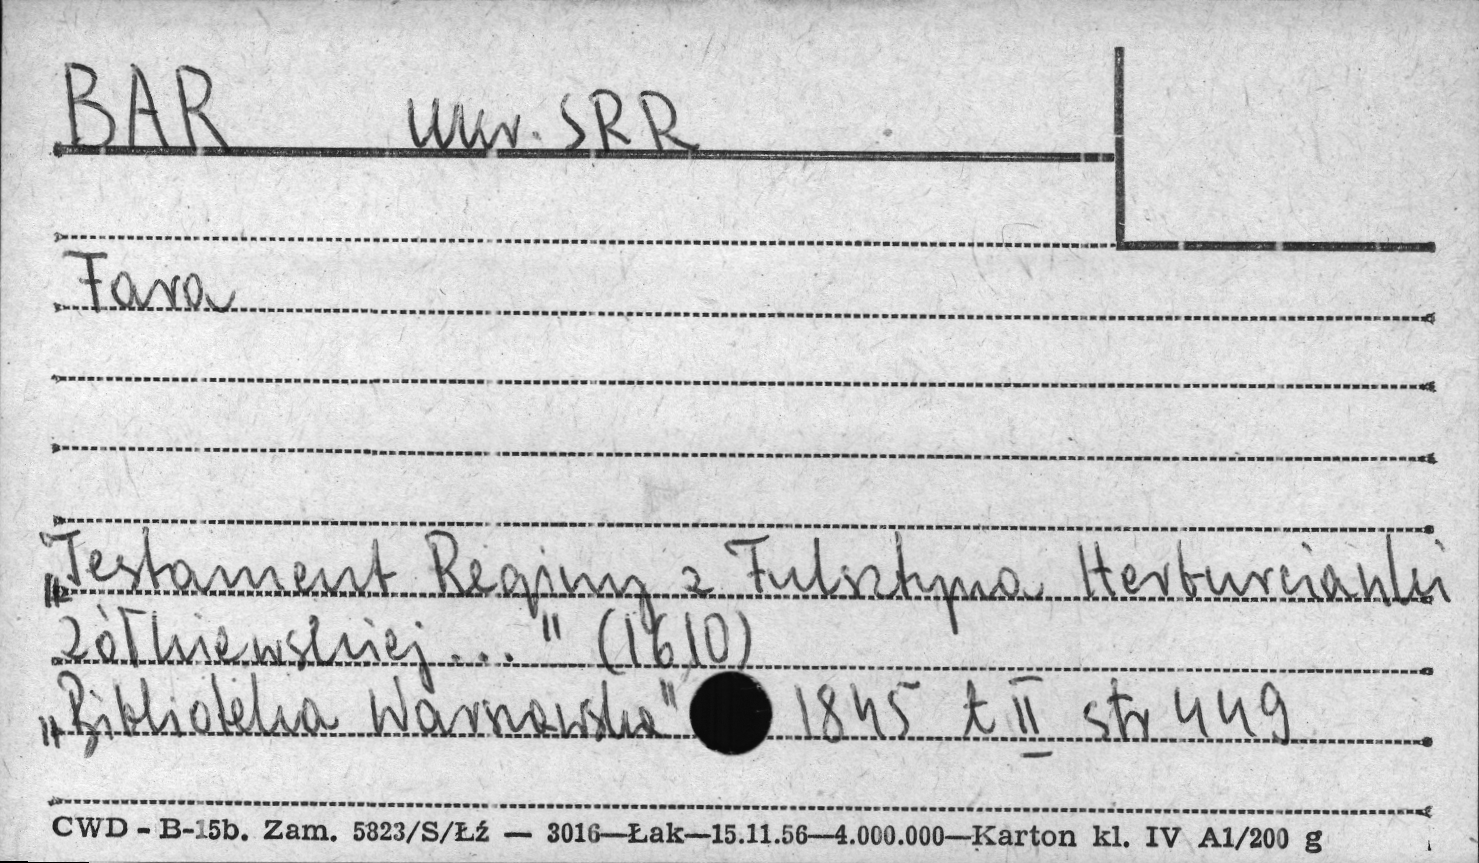 BAR Ukr. SRR
Fara
"Testament Reginy z Fulsztyna Herburcianki
Żółkiewskiej..." (1610)
"Biblioteka Warszawska" 1845 t II str 449
CWD - B-15b. Zam. 5823/S/Łź — 3016—Łak—15.11.56—4.000.000—Karton kl. IV A1/200 g